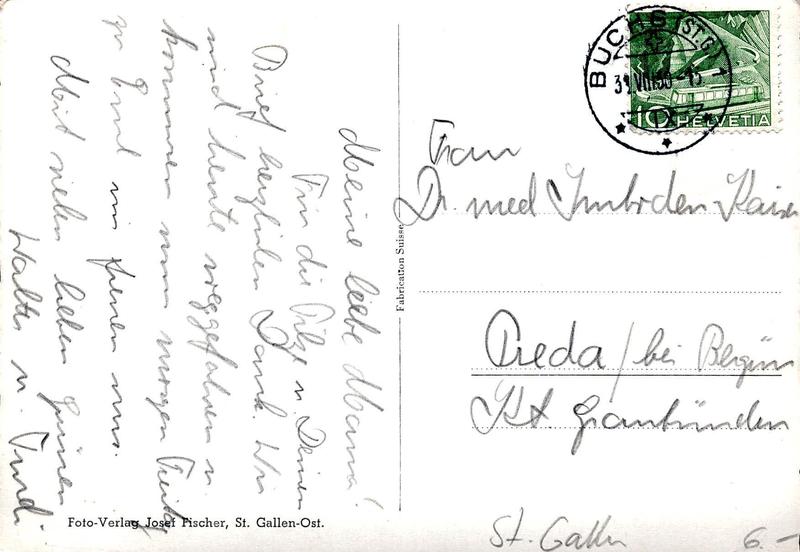 Meine liebe Mama!
Für die Pilze u. Deinen
Brief herzlichen Dank. Wir
sind heute weggefahren u.
kommen nun morgen Freitag
zu Emel wir freuen uns.
Mit vielen lieben Grüssen
Walter u. Trudi
Foto-Verlag Josef Fischer, St. Gallen-Ost.
Fabrication Suisse
BUCHS (ST.G.)
HELVETIA
10
Frau
Dr. med Imboden-Kaiser
Preda / bei Bergün
Kt. Graubünden
St. Gallen
6.-